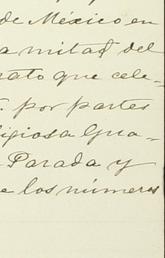 de México en
a mitad del
rato que cele-
por partes
ligiosa Gua-
Parada y
e los números